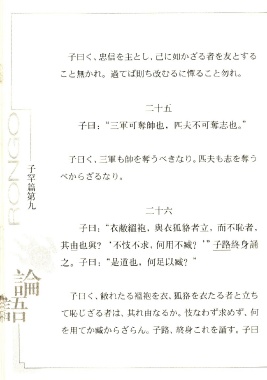 子曰く、忠信を主とし、己に如かざる者を友とする
こと無かれ。過てば則ち改むるに憚ること勿れ。
二十五
子曰：“三軍可奪帥也，匹夫不可奪志也。”
子曰く、三軍も帥を奪うべきなり。匹夫も志を奪う
べからざるなり。
二十六
子曰：“衣敝縕袍，與衣狐貉者立，而不恥者，
其由也與？‘不忮不求，何用不臧？’”子路終身誦
之。子曰：“是道也，何足以臧？”
子曰く、敝れたる縕袍を衣、狐貉を衣たる者と立ち
て恥じざる者は、其れ由なるか。忮なわず求めず、何
を用てか臧からざらん。子路、終身これを誦す。子曰
RONGO
子罕篇第九
論語